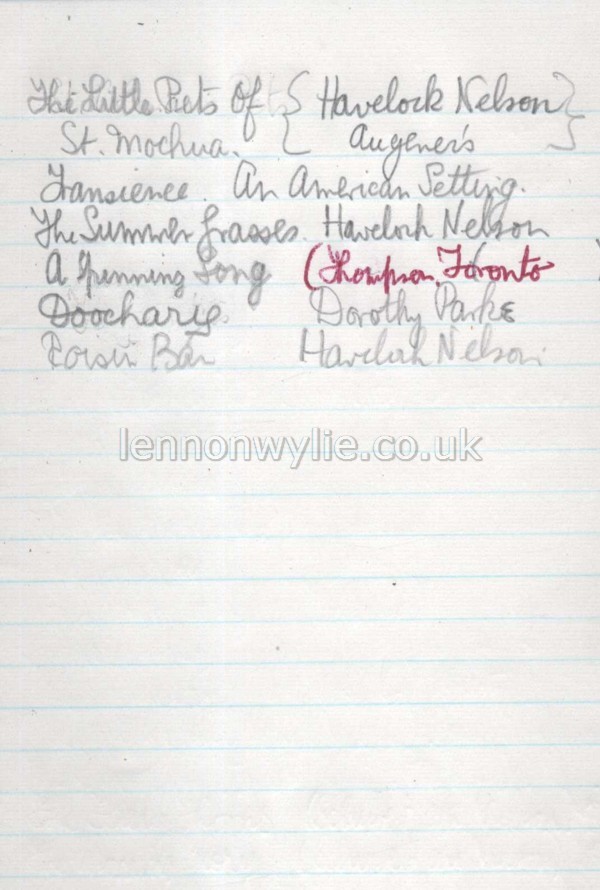 The Little Pets Of { Havelock Nelson }
St. Mochua. { Augener's }
Transience. An American Setting.
The Summer Grasses. Havelock Nelson
A Spinning Song (Thompson, Toronto)
Doocharie. Dorothy Parke
Roisin Bán Havelock Nelson.
lennonwylie.co.uk